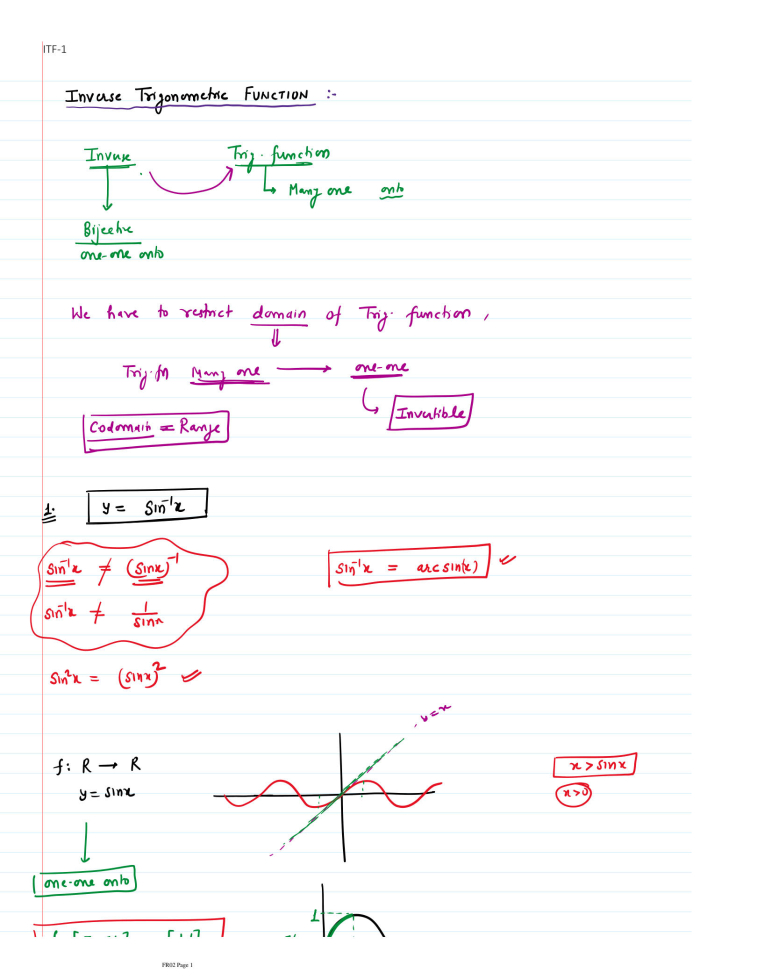 ITF-1
Inverse Trigonometric FUNCTION :-
Inverse Trig. function
Many one onto
Bijective
one-one onto
We have to restrict domain of Trig. function,
⇓
Trig. fn Many one → one-one
Invertible
Codomain = Range
1. y = Sin⁻¹x
sin⁻¹x ≠ (sinx)⁻¹ sin⁻¹x = arc sin(x)
sin⁻¹x ≠ 1/sinx
Sin²x = (sinx)²
y=x
f: R → R x > sinx
y = sinx x>0
one-one onto
1
FR02 Page 1